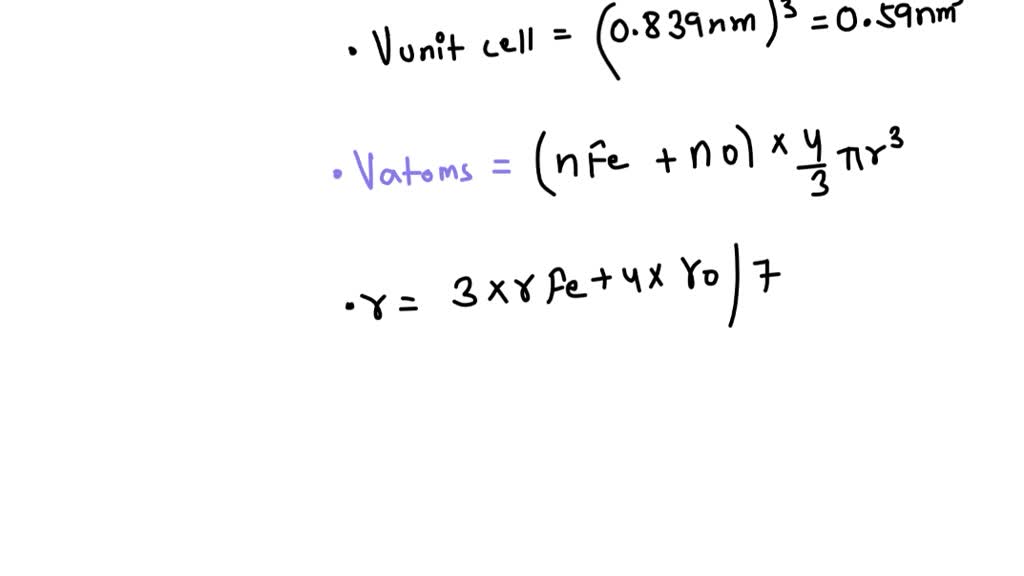 • Vunit cell = (0.839nm)³ = 0.59nm³
• Vatoms = (nFe + no) × 4/3 πr³
• r = 3 × rFe + 4 × ro | 7